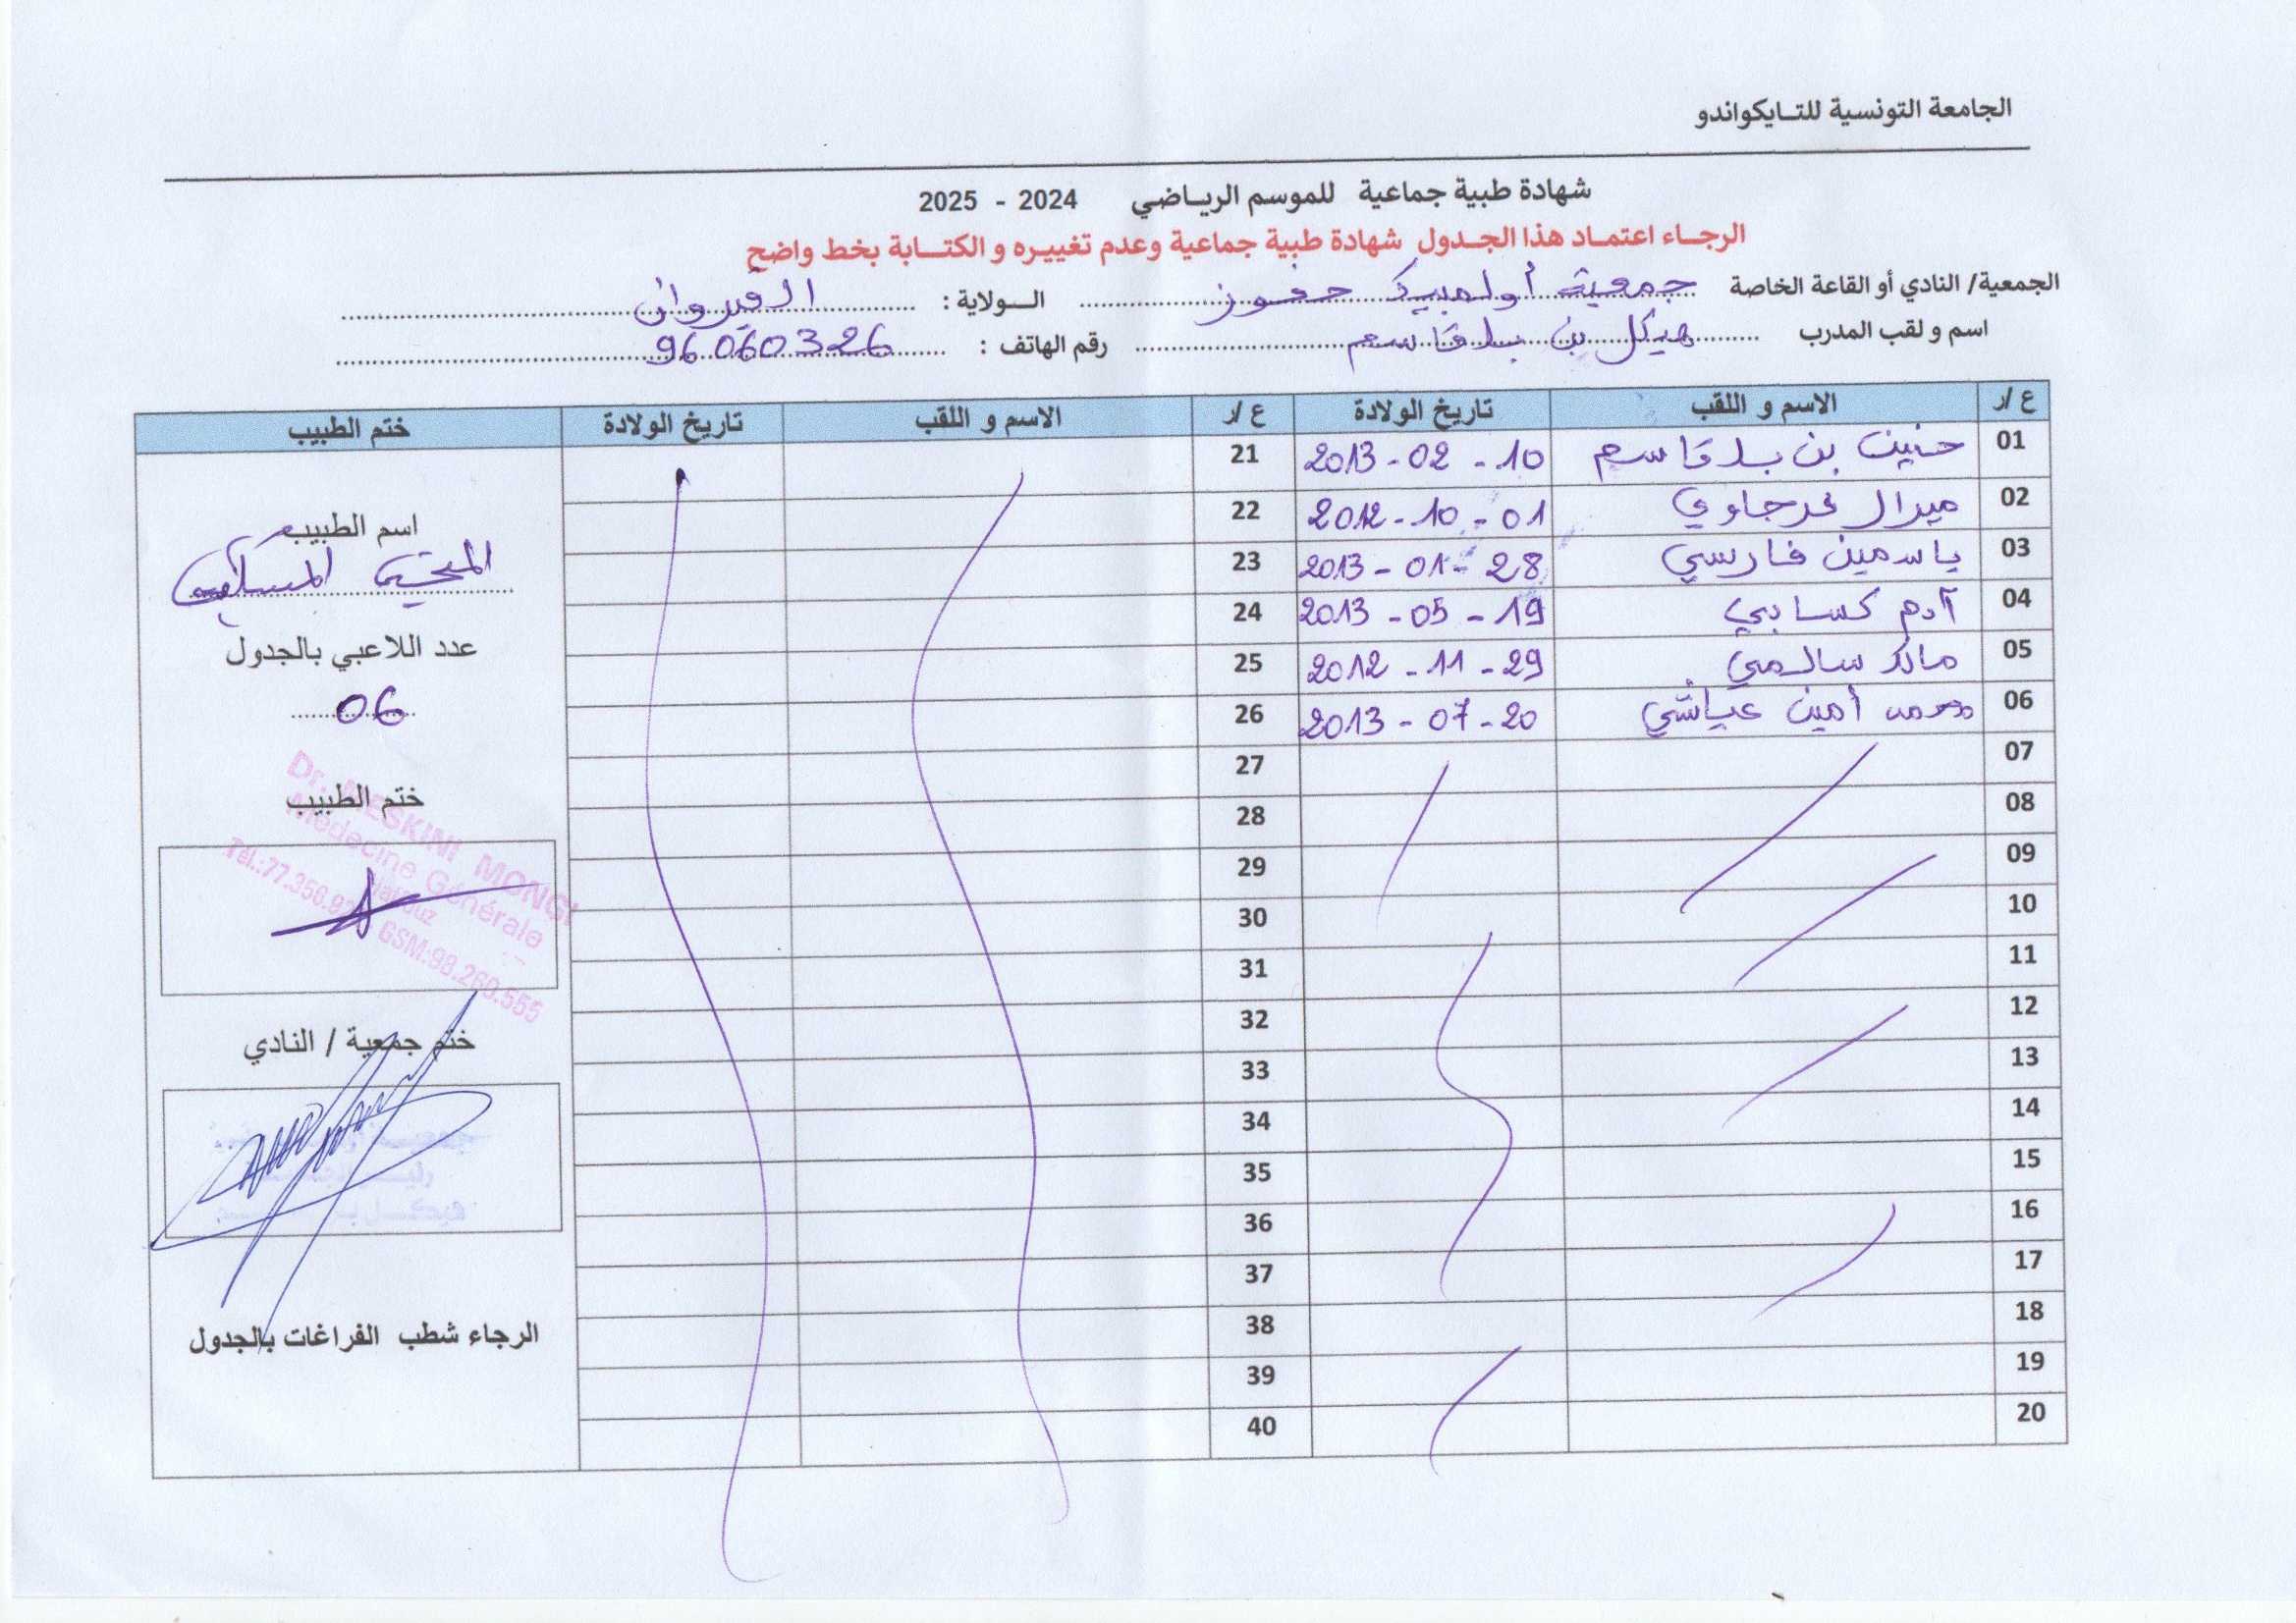 الجامعة التونسية للتـايكواندو
شهادة طبية جماعية للموسم الرياضي 2024 - 2025
الرجاء اعتماد هذا الجدول شهادة طبية جماعية وعدم تغييره و الكتابة بخط واضح
الجمعية/ النادي أو القاعة الخاصة جمعية أولمبيك حفوز الـولاية : القيروان
اسم و لقب المدرب هيكل بن بلقاسم رقم الهاتف : 96060326
ع /ر الاسم و اللقب تاريخ الولادة ع /ر الاسم و اللقب تاريخ الولادة ختم الطبيب
01 حنين بن بلقاسم 10 - 02 - 2013 21
02 ميرال غرجاوي 01 - 10 - 2012 22
03 ياسمين فارسي 28 - 01 - 2013 23
04 آدم كسابي 19 - 05 - 2013 24
05 مالك سالمي 29 - 11 - 2012 25
06 محمد أمين عياشي 20 - 07 - 2013 26
07 27
08 28
09 29
10 30
11 31
12 32
13 33
14 34
15 35
16 36
17 37
18 38
19 39
20 40
اسم الطبيب
المنجي المسكيني
عدد اللاعبي بالجدول
06
ختم الطبيب
Dr. MESKINI MONGI
Médecine Générale
Haffouz
GSM:98.260.555
ختم جمعية / النادي
هيكل
الرجاء شطب الفراغات بالجدول